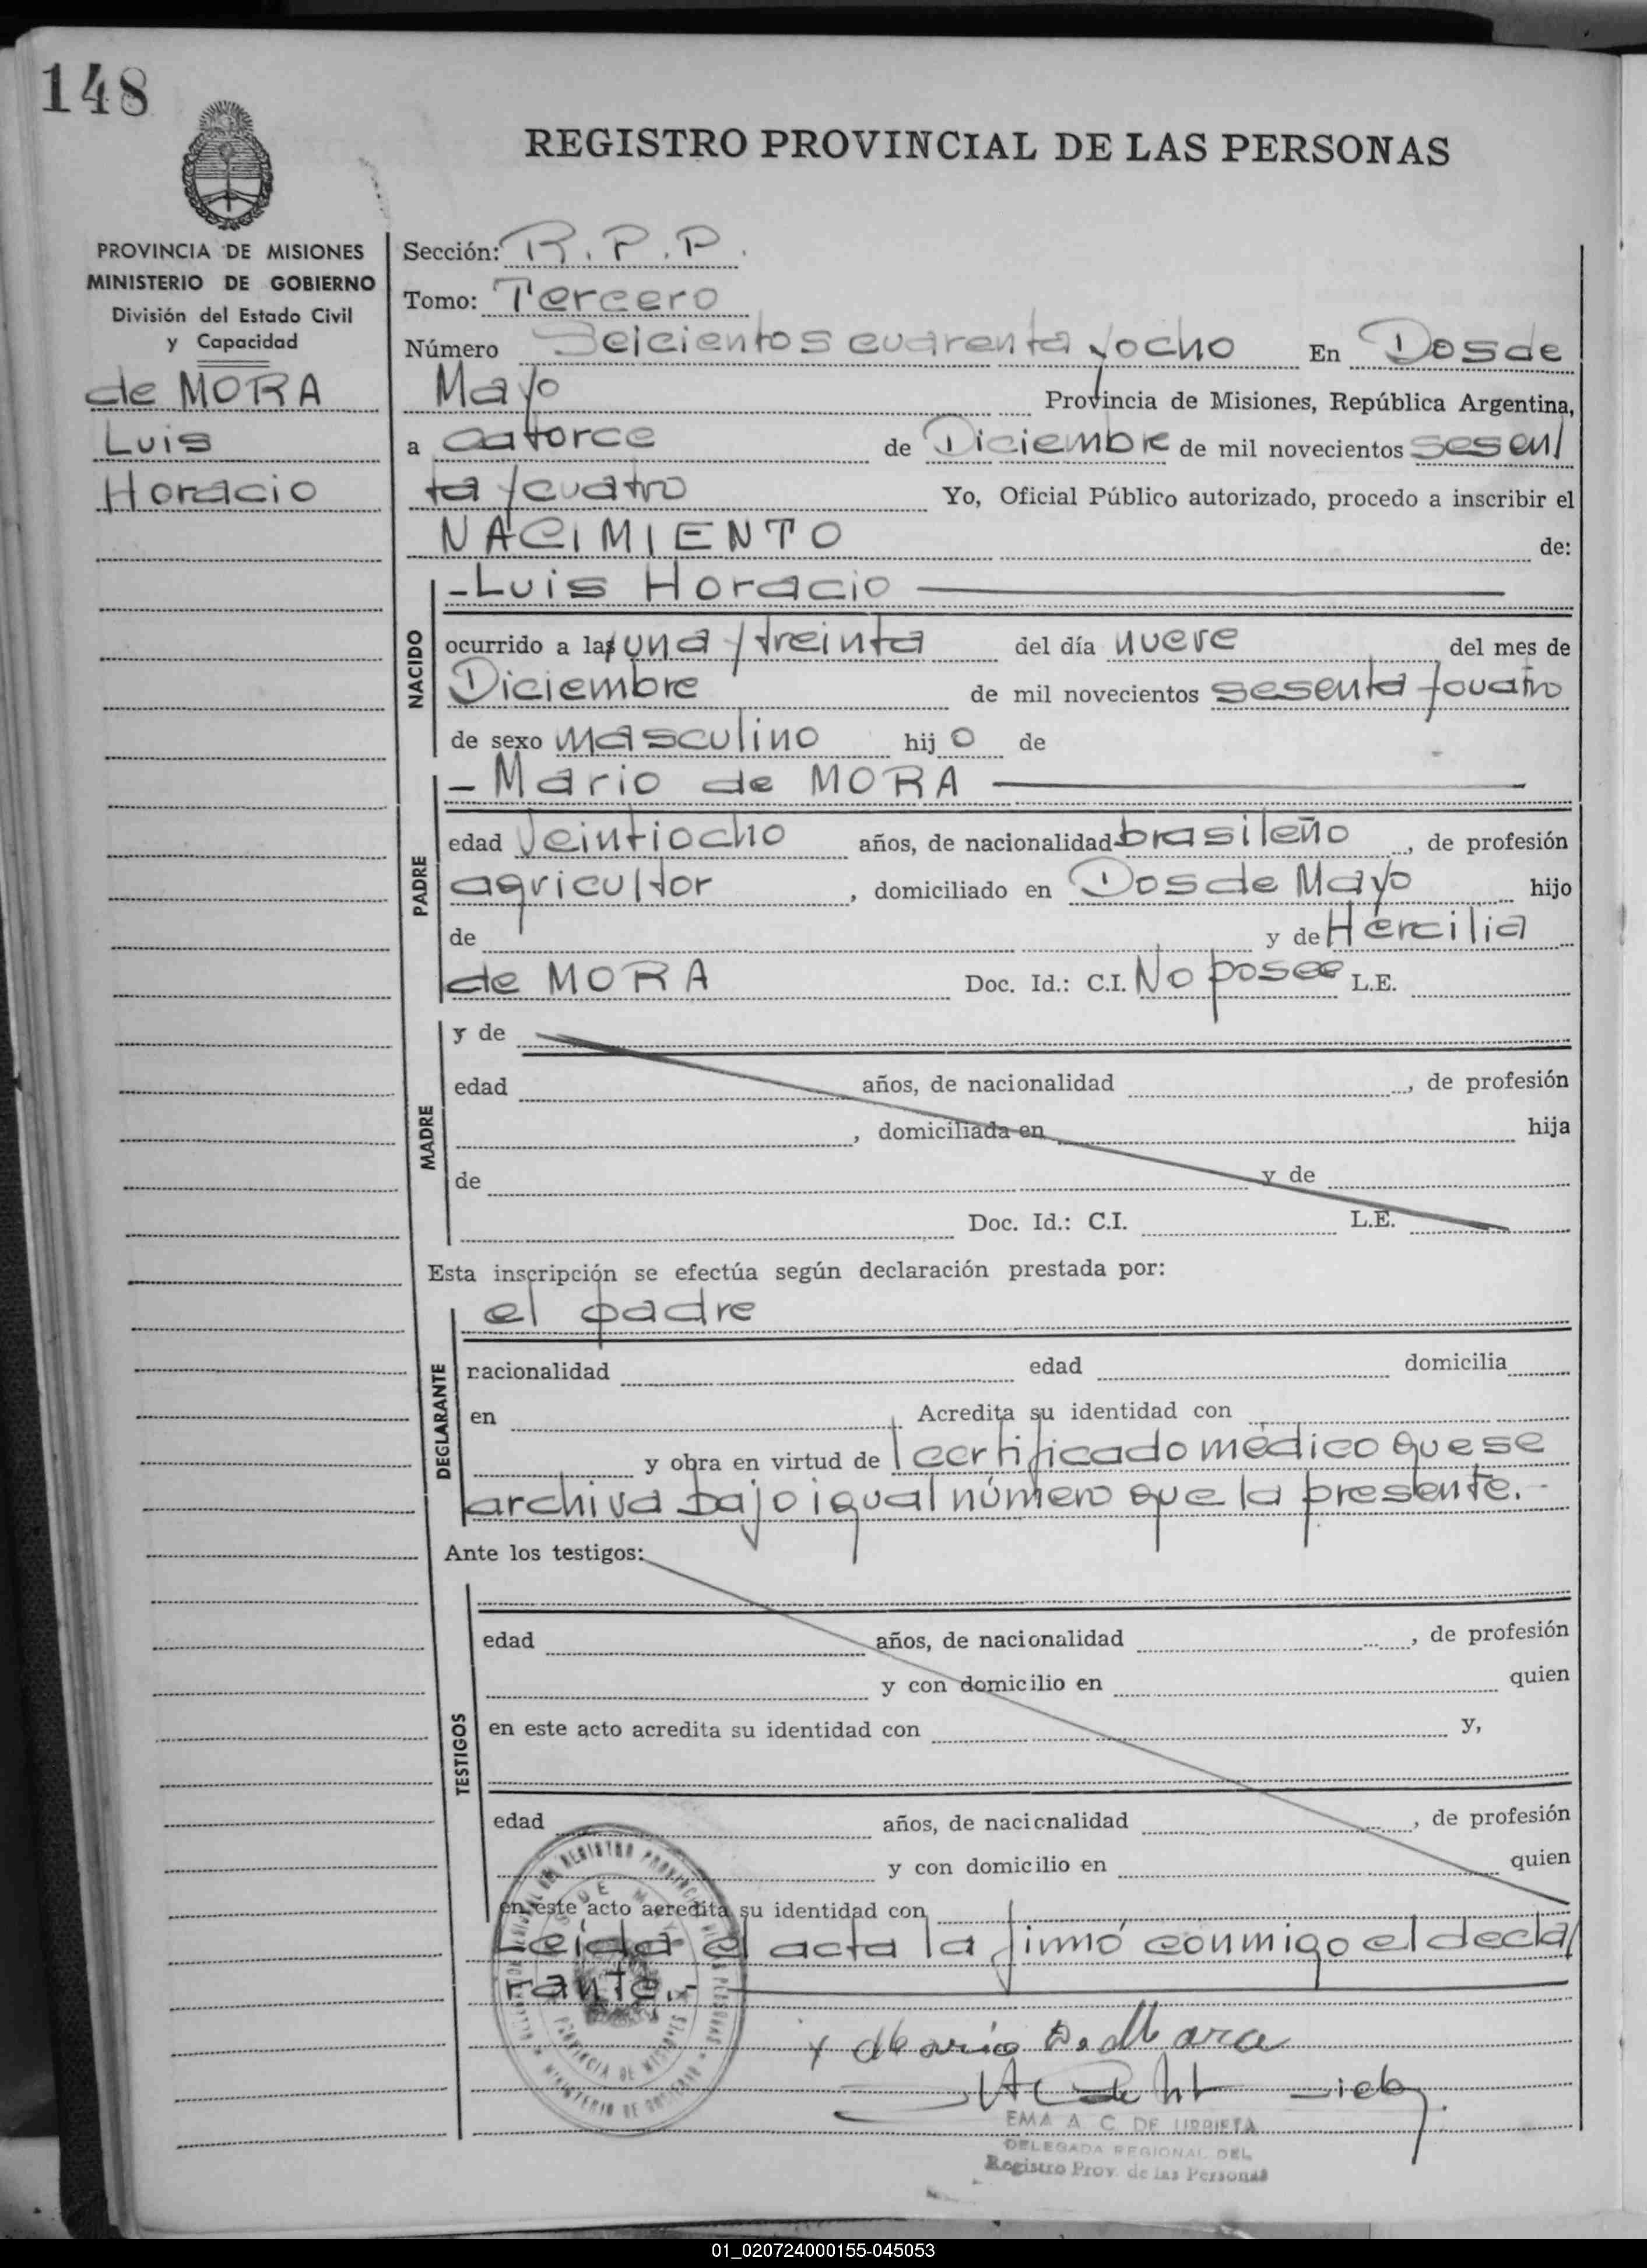 148
REGISTRO PROVINCIAL DE LAS PERSONAS
PROVINCIA DE MISIONES
MINISTERIO DE GOBIERNO
División del Estado Civil
y Capacidad
de MORA
Luis
Horacio
Sección: R.P.P.
Tomo: Tercero
Número Seicientos cuarenta y ocho En Dos de
Mayo Provincia de Misiones, República Argentina,
a catorce de Diciembre de mil novecientos sesen/
ta y cuatro Yo, Oficial Público autorizado, procedo a inscribir el
NACIMIENTO de:
NACIDO
-Luis Horacio
ocurrido a las una y treinta del día nueve del mes de
Diciembre de mil novecientos sesenta y cuatro
de sexo masculino hijo de
PADRE
- Mario de MORA
edad veintiocho años, de nacionalidad brasileño, de profesión
agricultor, domiciliado en Dos de Mayo hijo
de y de Hercilia
de MORA Doc. Id.: C.I. No posee L.E.
MADRE
y de
edad años, de nacionalidad , de profesión
, domiciliada en hija
de y de
Doc. Id.: C.I. L.E.
Esta inscripción se efectúa según declaración prestada por:
DECLARANTE
el padre
nacionalidad edad domicilia
en Acredita su identidad con
y obra en virtud de l certificado médico que se
archiva bajo igual número que la presente.-
Ante los testigos:
TESTIGOS
edad años, de nacionalidad , de profesión
y con domicilio en quien
en este acto acredita su identidad con y,
edad años, de nacionalidad , de profesión
y con domicilio en quien
en este acto acredita su identidad con
Leida el acta la firmó conmigo el decla/
rante.-
PROVINCIA DE MISIONES
x Mario D. Mora
EMA A. C. DE URBIETA
DELEGADA REGIONAL DEL
Registro Prov. de las Personas
01_020724000155-045053